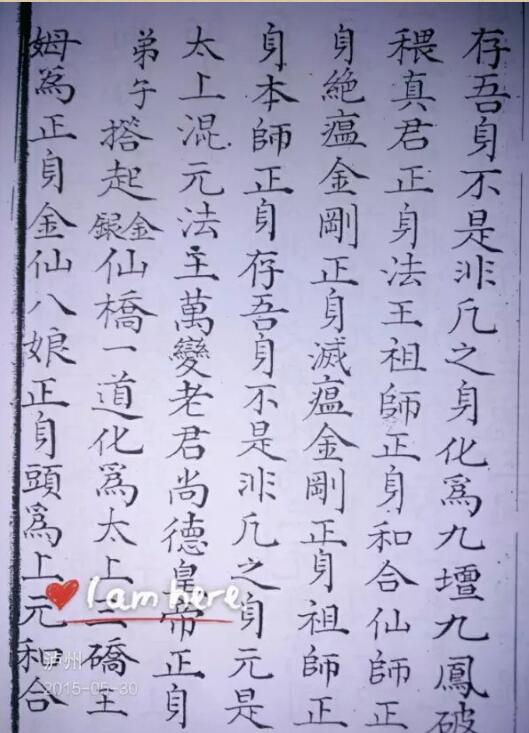 存吾身不是非凢之身化為九壇九鳳破
穢真君正身法王祖師正身和合仙師正
身絶瘟金剛正身滅瘟金剛正身祖師正
身本師正身存吾身不是非凢之身元是
太上混元法主萬變老君尚德皇帝正身
弟子搭起金銀仙橋一道化為太上三礄王
姆為正身金仙八娘正身頭為上元和合
I am here
泸州
2015-05-30